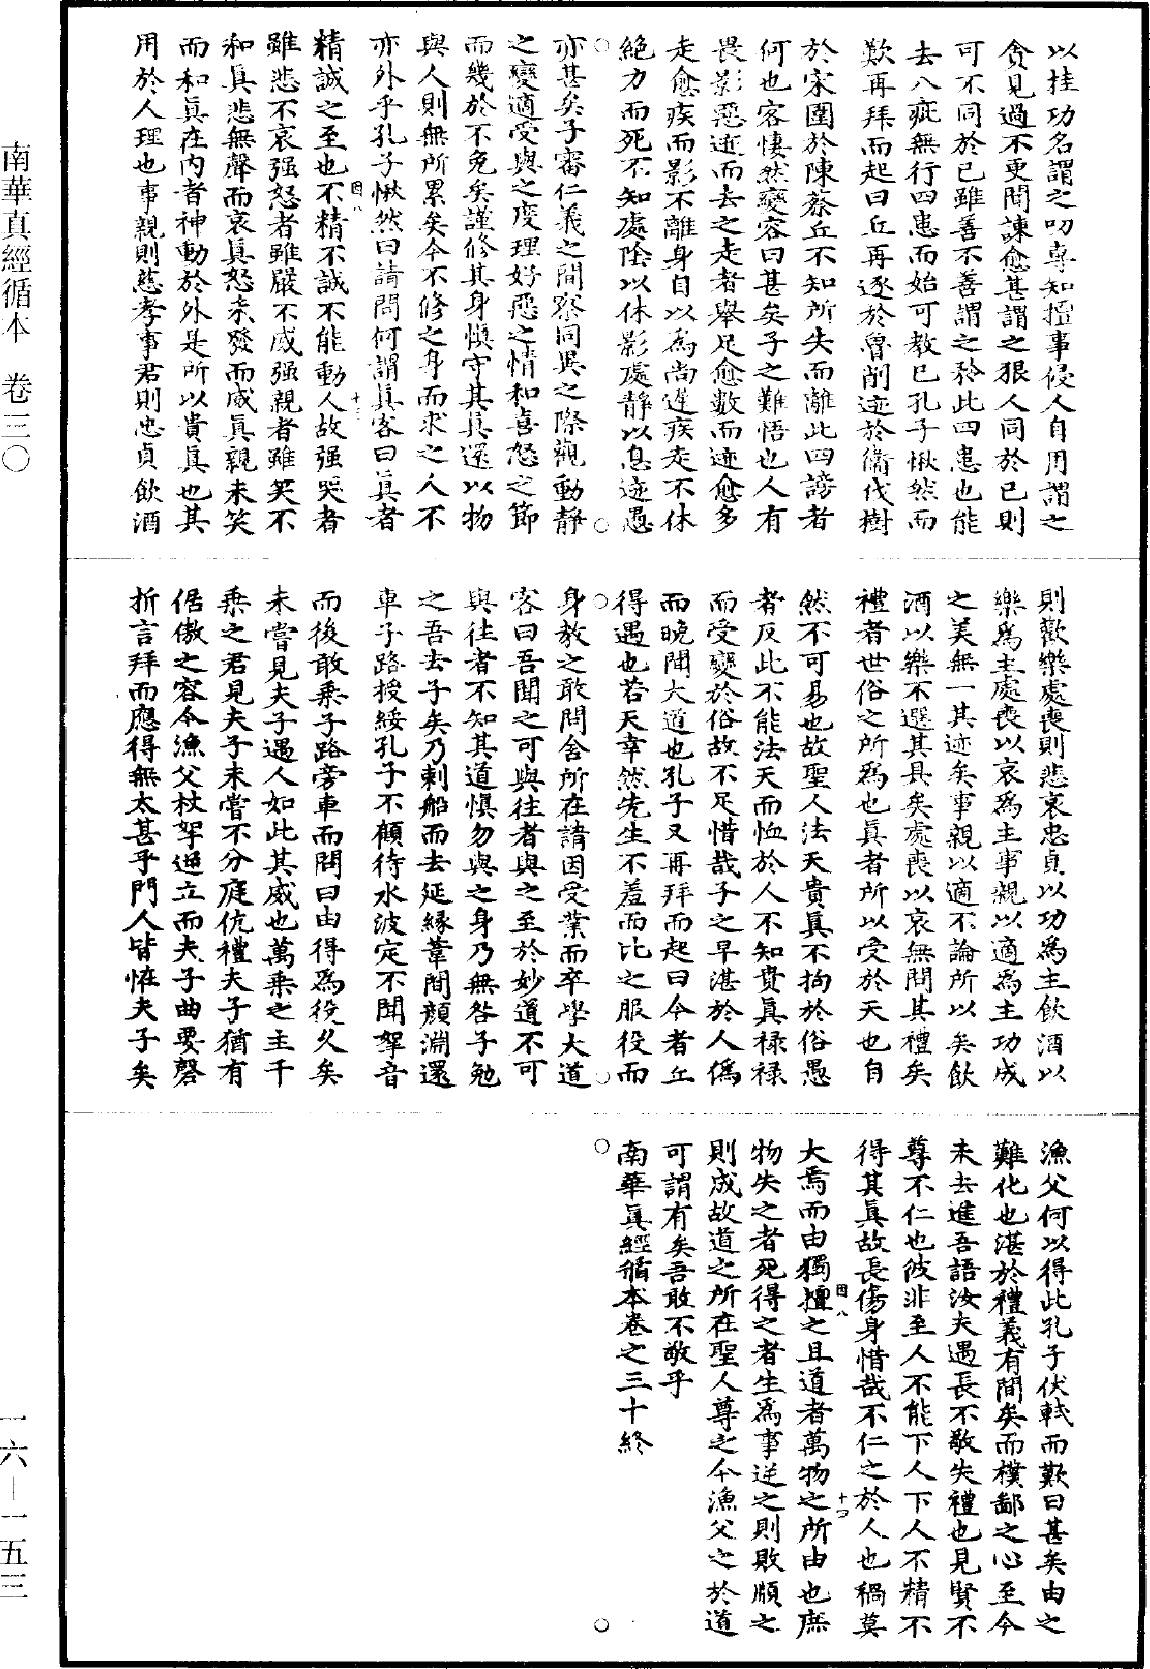 以挂功名謂之叨專知擅事侵人自用謂之
貪見過不更聞諫愈甚謂之狠人同於已則
可不同於已雖善不善謂之矜此四患也能
去八疵無行四患而始可教巳孔子愀然而
歎再拜而起曰丘再逐於魯削迹於衞伐樹
於宋圍於陳蔡丘不知所失而離此四謗者
何也客悽然變容曰甚矣子之難悟也人有
畏影惡迹而去之走者舉足愈數而迹愈多
走愈疾而影不離身自以爲尚遲疾走不休
絶力而死不知處陰以休影處靜以息迹愚
亦甚矣子審仁義之間察同異之際觀動靜
之變適受與之度理好惡之情和喜怒之節
而幾於不免矣謹修其身慎守其真還以物
與人則無所累矣今不修之身而求之人不
亦外乎孔子愀然曰請問何謂真客曰真者
因八
十三
精誠之至也不精不誠不能動人故强哭者
雖悲不哀强怒者雖嚴不威强親者雖笑不
和真悲無聲而哀真怒未發而威真親未笑
而和真在内者神動於外是所以貴真也其
用於人理也事親則慈孝事君則忠貞飲酒
則歡樂處喪則悲哀忠貞以功爲主飲酒以
樂爲主處喪以哀爲主事親以適爲主功成
之美無一其迹矣事親以適不論所以矣飲
酒以樂不選其具矣處喪以哀無問其禮矣
禮者世俗之所爲也真者所以受於天也自
然不可易也故聖人法天貴真不拘於俗愚
者反此不能法天而恤於人不知貴真禄禄
而受變於俗故不足惜哉子之早湛於人僞
而晚聞大道也孔子又再拜而起曰今者丘
得遇也若天幸然先生不羞而比之服役而
身教之敢問舍所在請因受業而卒學大道
客曰吾聞之可與往者與之至於妙道不可
與往者不知其道慎勿與之身乃無咎子勉
之吾去子矣乃刺船而去延緣葦間顔淵還
車子路授綏孔子不顧待水波定不聞挐音
而後敢乘子路旁車而問曰由得爲役久矣
未嘗見夫子遇人如此其威也萬乘之主千
乘之君見夫子未嘗不分庭伉禮夫子猶有
倨傲之容今漁父杖挐逆立而夫子曲要磬
折言拜而應得無太甚乎門人皆怪夫子矣
漁父何以得此孔子伏軾而歎曰甚矣由之
難化也湛於禮義有間矣而樸鄙之心至今
未去進吾語汝夫遇長不敬失禮也見賢不
尊不仁也彼非至人不能下人下人不精不
得其真故長傷身惜哉不仁之於人也禍莫
大焉而由獨擅之且道者萬物之所由也庶
因八
十四
物失之者死得之者生爲事逆之則敗順之
則成故道之所在聖人尊之今漁父之於道
可謂有矣吾敢不敬乎
南華真經循本卷之三十終
南華真經循本 卷三〇
一六—一五三